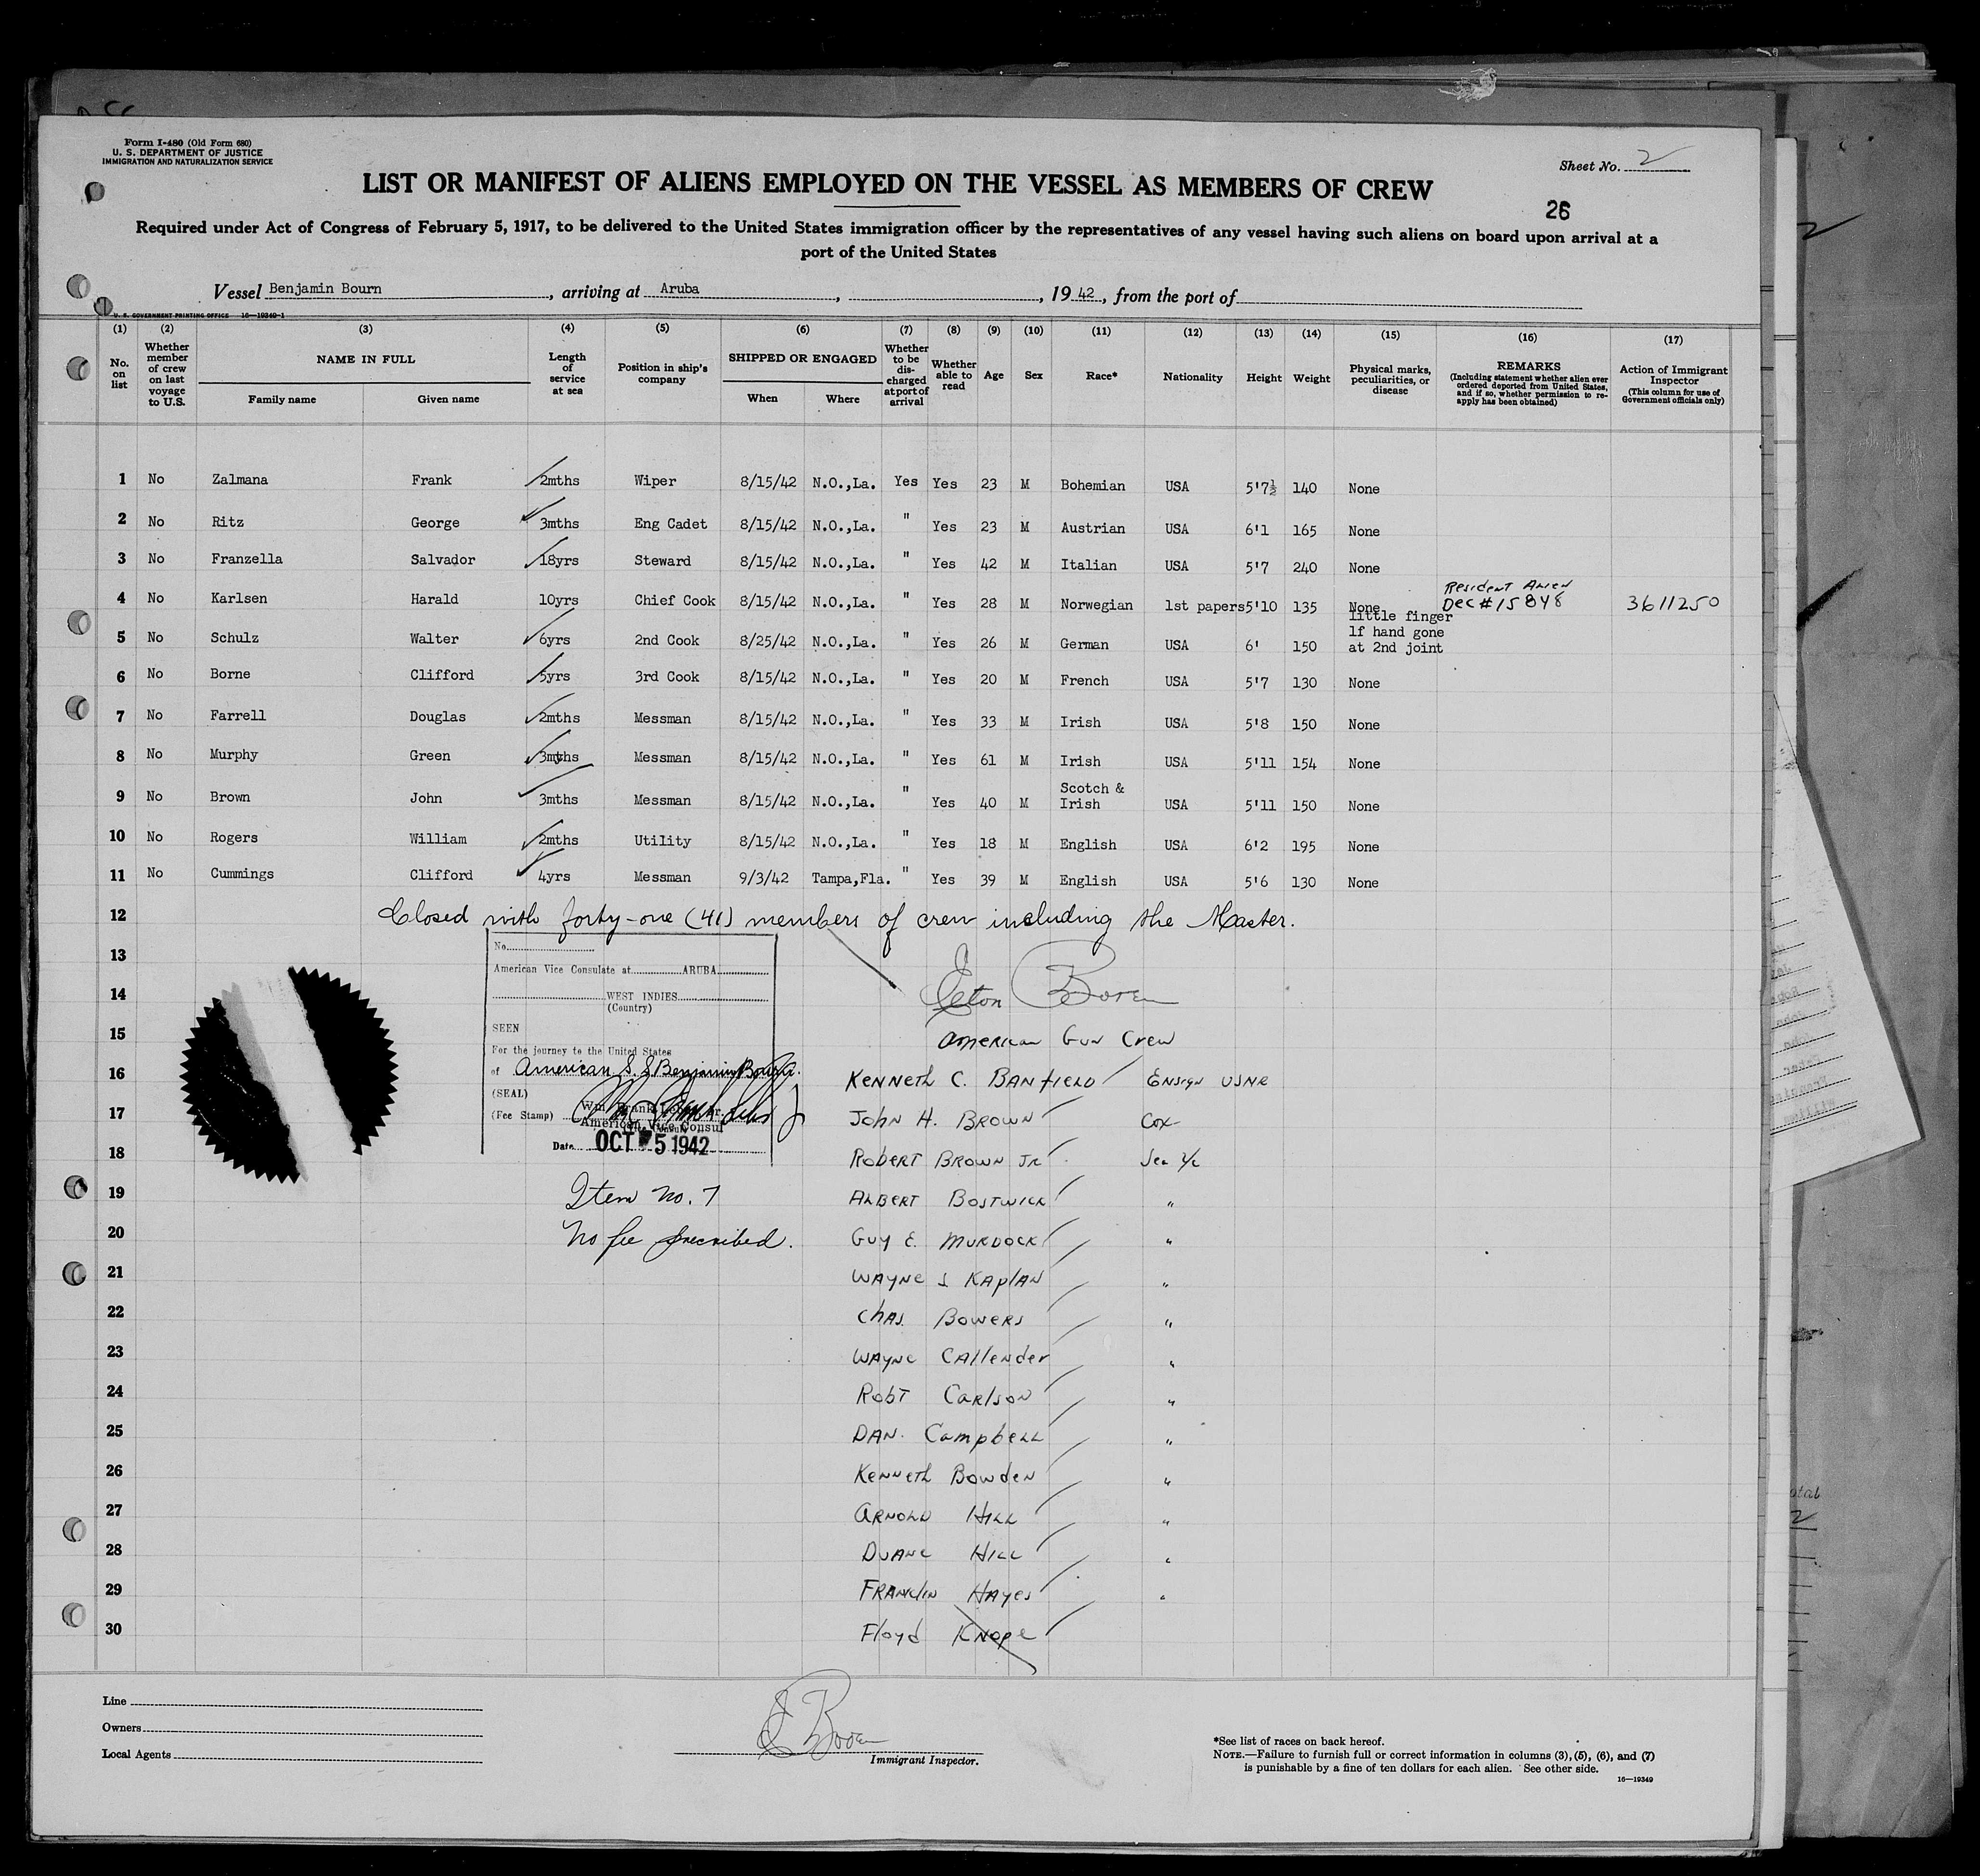 Form I-480 (Old Form 680)
U. S. DEPARTMENT OF JUSTICE
IMMIGRATION AND NATURALIZATION SERVICE
Sheet No. 2
LIST OR MANIFEST OF ALIENS EMPLOYED ON THE VESSEL AS MEMBERS OF CREW
26
Required under Act of Congress of February 5, 1917, to be delivered to the United States immigration officer by the representatives of any vessel having such aliens on board upon arrival at a
port of the United States
Vessel Benjamin Bourn, arriving at Aruba, , 19 42, from the port of
U. S. GOVERNMENT PRINTING OFFICE 16—19349-1
(1) (2) (3) (4) (5) (6) (7) (8) (9) (10) (11) (12) (13) (14) (15) (16) (17)
No. on list
Whether member of crew on last voyage to U.S.
NAME IN FULL
Family name Given name
Length of service at sea
Position in ship's company
SHIPPED OR ENGAGED
When Where
Whether to be discharged at port of arrival
Whether able to read
Age
Sex
Race*
Nationality
Height
Weight
Physical marks, peculiarities, or disease
REMARKS
(Including statement whether alien ever ordered deported from United States, and if so, whether permission to re-apply has been obtained)
Action of Immigrant Inspector
(This column for use of Government officials only)
1 No Zalmana Frank 2mths Wiper 8/15/42 N.O.,La. Yes Yes 23 M Bohemian USA 5'7½ 140 None
2 No Ritz George 3mths Eng Cadet 8/15/42 N.O.,La. " Yes 23 M Austrian USA 6'1 165 None
3 No Franzella Salvador 18yrs Steward 8/15/42 N.O.,La. " Yes 42 M Italian USA 5'7 240 None
4 No Karlsen Harald 10yrs Chief Cook 8/15/42 N.O.,La. " Yes 28 M Norwegian 1st papers 5'10 135 None Resident Alien Dec # 15848 3611250
5 No Schulz Walter 6yrs 2nd Cook 8/25/42 N.O.,La. " Yes 26 M German USA 6' 150 little finger lf hand gone at 2nd joint
6 No Borne Clifford 5yrs 3rd Cook 8/15/42 N.O.,La. " Yes 20 M French USA 5'7 130 None
7 No Farrell Douglas 2mths Messman 8/15/42 N.O.,La. " Yes 33 M Irish USA 5'8 150 None
8 No Murphy Green 3mths Messman 8/15/42 N.O.,La. " Yes 61 M Irish USA 5'11 154 None
9 No Brown John 3mths Messman 8/15/42 N.O.,La. " Yes 40 M Scotch & Irish USA 5'11 150 None
10 No Rogers William 2mths Utility 8/15/42 N.O.,La. " Yes 18 M English USA 6'2 195 None
11 No Cummings Clifford 4yrs Messman 9/3/42 Tampa,Fla. " Yes 39 M English USA 5'6 130 None
12 Closed with forty-one (41) members of crew including the Master.
No.
American Vice Consulate at ARUBA
WEST INDIES
(Country)
SEEN
For the journey to the United States
of American S.S Benjamin Bourn.
(SEAL)
(Fee Stamp)
American Vice Consul
Date OCT 5 1942
Item No. 7
No fee prescribed.
13
14
15 American Gun Crew
16 Kenneth C. Banfield Ensign USNR
17 John H. Brown Cox
18 Robert Brown Jr Sea 2/c
19 Albert Bostwick "
20 Guy E. Murdock "
21 Wayne J Kaplan "
22 Chas. Bowers "
23 Wayne Callender "
24 Robt Carlson "
25 Dan. Campbell "
26 Kenneth Bowden "
27 Arnold Hill "
28 Duane Hill "
29 Franclin Hayes "
30 Floyd Knope
Line
Owners
Local Agents
E Boren
Immigrant Inspector.
*See list of races on back hereof.
NOTE.—Failure to furnish full or correct information in columns (3), (5), (6), and (7)
is punishable by a fine of ten dollars for each alien. See other side.
16—19349